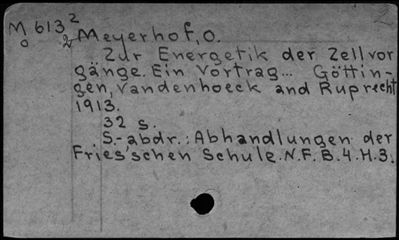 M 613 2
o 2 Meyerhof, O.
Zur Energetik der Zellvor
gänge. Ein Vortrag... Göttin-
gen, Vandenhoeck and Ruprecht
1913.
32 s.
S.-abdr.: Abhandlungen der
Fries'schen Schule. N.F. B.4. H.3.